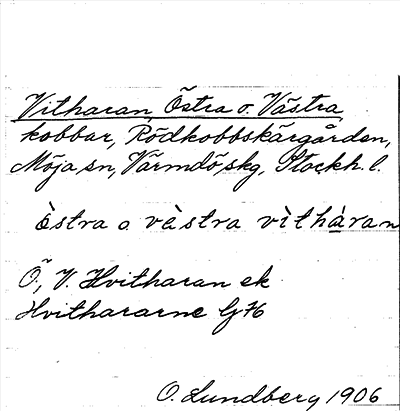 Vitharan, Östra o. Västra
kobbar, Rödkobbskärgården,
Möja sn, Värmdö skg, Stockh. l.
èstra o vèstra vìthàran
Ö., V. Hvitharan ek
Hvithararne G 76
O. Lundberg 1906